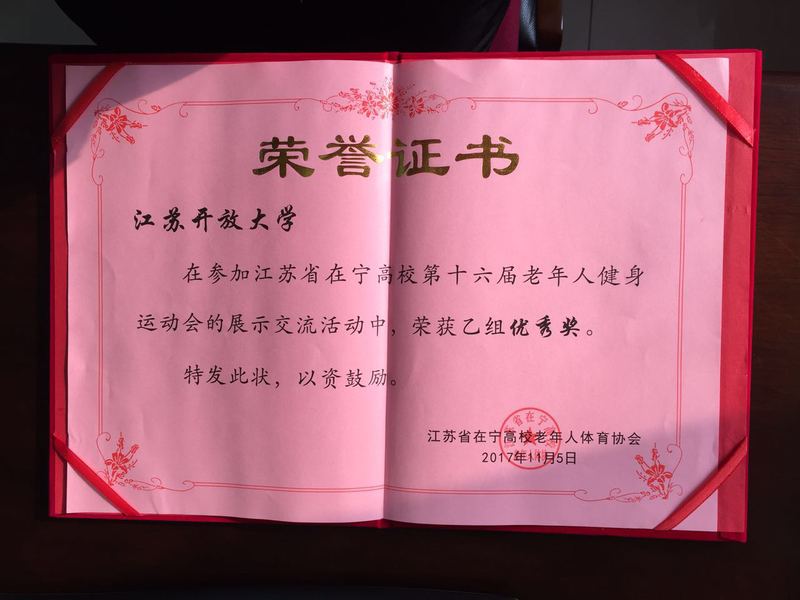 荣誉证书
江苏开放大学
在参加江苏省在宁高校第十六届老年人健身
运动会的展示交流活动中，荣获乙组优秀奖。
特发此状，以资鼓励。
江苏省在宁高校老年人体育协会
2017年11月5日